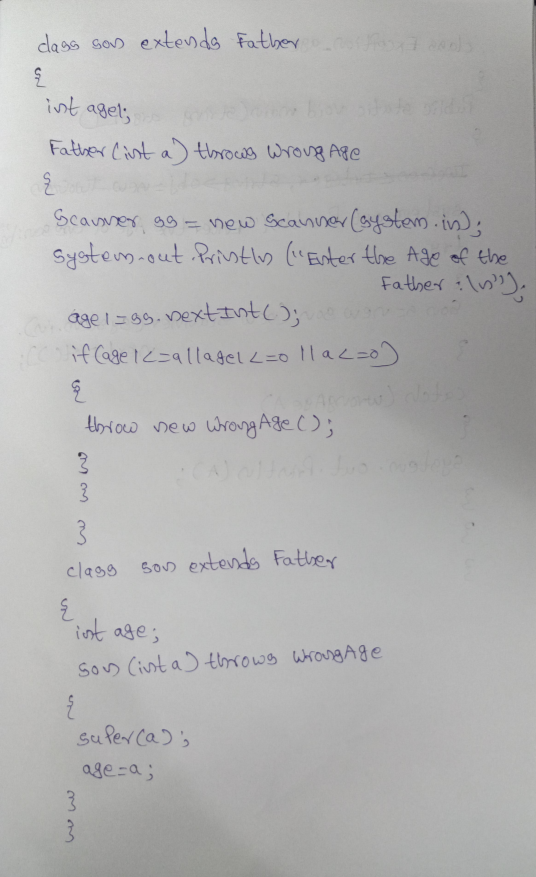 class son extends Father
{
int age1;
Father (int a) throws WrongAge
{
Scanner ss = new Scanner(system.in);
system.out.Println ("Enter the Age of the
Father : \n");
age1=ss.nextInt();
if(age1<=a||age1<=0 || a<=0)
{
throw new WrongAge();
}
}
}
class son extends Father
{
int age;
son (int a) throws WrongAge
{
super(a);
age=a;
}
}